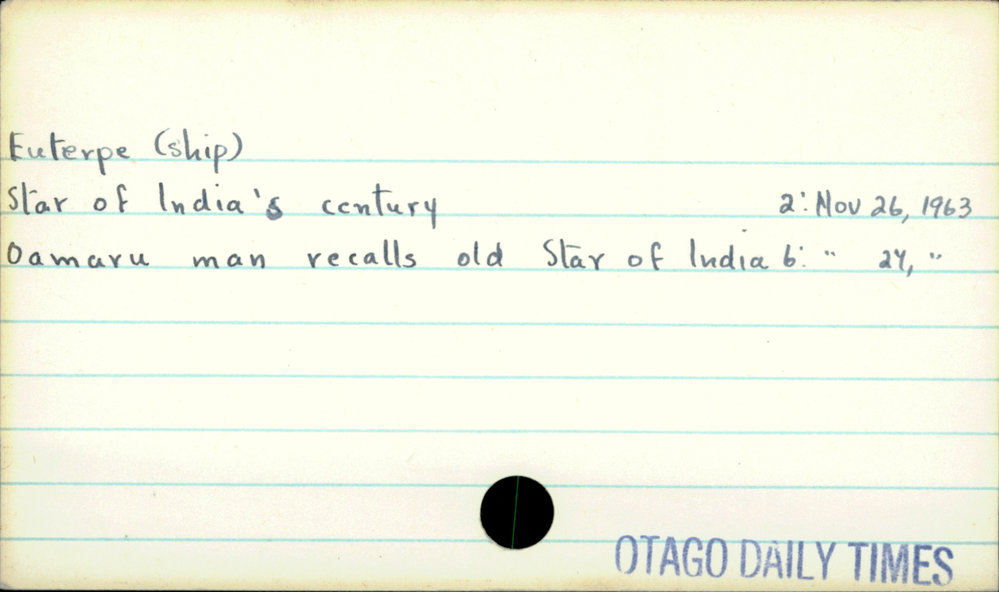 Euterpe (ship)
Star of India's century 2: Nov 26, 1963
Oamaru man recalls old Star of India 6: " 27, "
OTAGO DAILY TIMES